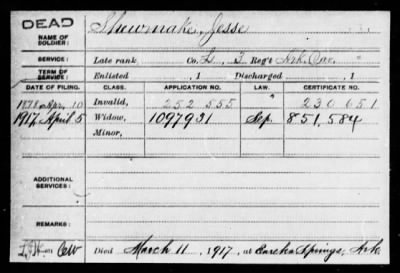 DEAD
NAME OF SOLDIER: Shewmake, Jesse
SERVICE: Late rank Co. L, 3 Reg't Ark. Cav.
TERM OF SERVICE: Enlisted , 1 Discharged , 1
DATE OF FILING. CLASS. APPLICATION NO. LAW. CERTIFICATE NO.
1878 Apr. 10 Invalid, 252 555 230 651
1917 April 5 Widow, 1097931 Sep. 851,584
Minor,
ADDITIONAL SERVICES:
REMARKS:
Died March 11, 1917, at Eureka Springs, Ark.